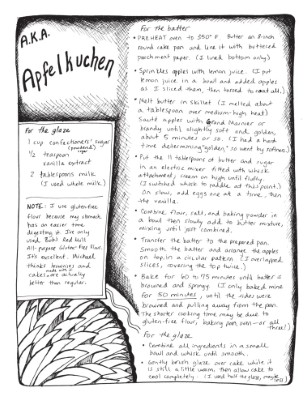 A.K.A.
Apfelkuchen
For the glaze
1 cup confectioners' sugar
(powdered)
1/2 teaspoon
vanilla extract
2 tablespoons milk
(I used whole milk.)
NOTE: I use gluten-free
flour because my stomach
has an easier time
digesting it. I've only
used Bob's Red Mill
all-purpose Gluten Free Flour.
It's excellent. Michael
thinks brownies and
cakes made with it are actually
better than regular.
For the batter
• PREHEAT oven to 350° F. Butter an 8-inch
round cake pan and line it with buttered
parchment paper. (I lined bottom only)
• Sprinkle apples with lemon juice. (I put
lemon juice in a bowl and added apples
as I sliced them, then turned to coat all.)
• Melt butter in skillet (I melted about
a tablespoon over medium-high heat)
Sauté apples with
brandy until slightly soft and golden,
about 5 minutes or so. (I had a hard
time determining "golden," so went by softness.)
• Put the 11 tablespoons of butter and sugar
in an electric mixer fitted with whisk
attachment; cream on high until fluffy.
(I switched whisk to paddle at this point.)
On slow, add eggs one at a time, then
the vanilla.
• Combine flour, salt, and baking powder in
a bowl then slowly add to butter mixture,
mixing until just combined.
• Transfer the batter to the prepared pan.
Smooth the batter and arrange the apples
on top in a circular pattern (I overlapped
slices, covering the top twice.)
• Bake for 60 to 75 minutes until baked
browned and springy (I only baked mine
for 50 minutes, until the sides were
browned and pulling away from the pan.
The shorter cooking time may be due to
gluten-free flour, baking pan, oven—or all
three!)
For the glaze
• Combine all ingredients in a small
bowl and whisk until smooth.
• Gently brush glaze over cake while it
is still a little warm, then allow cake to
cool completely.